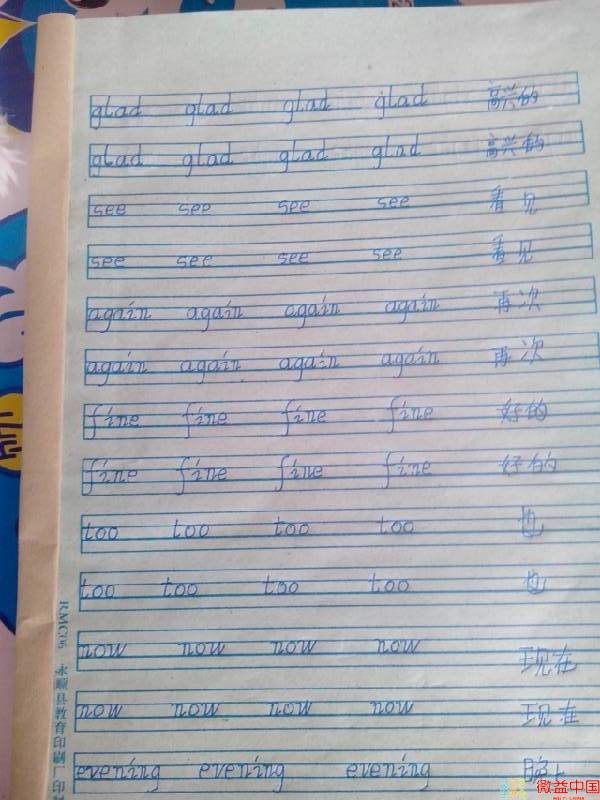 glad glad glad glad 高兴的
glad glad glad glad 高兴的
see see see see 看见
see see see see 看见
again again again again 再次
again again again again 再次
fine fine fine fine 好的
fine fine fine fine 好的
too too too too 也
too too too too 也
now now now now 现在
now now now now 现在
evening evening evening 晚上
RMC06 永顺县教育印刷厂印
微益中国